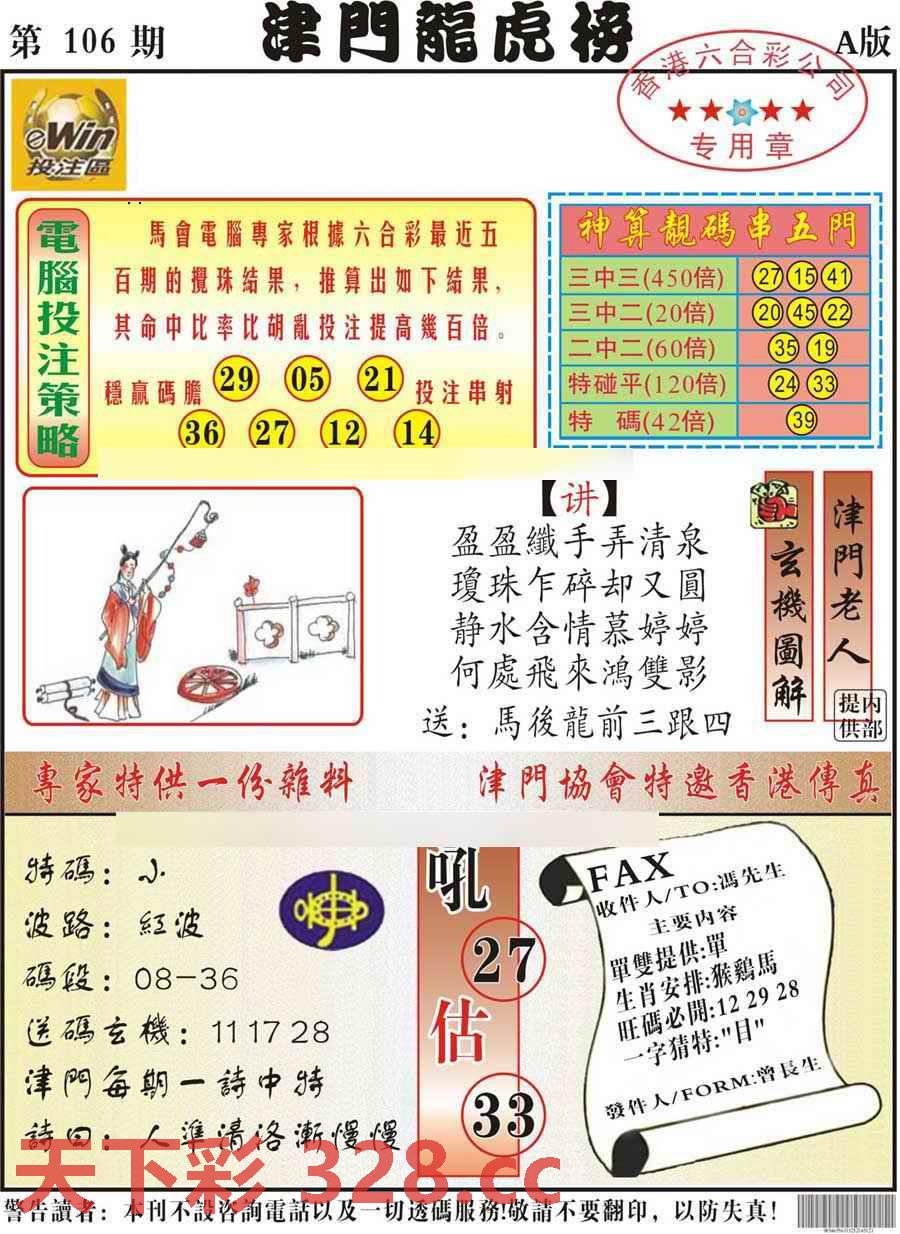 第 106 期
津門龍虎榜
A版
香港六合彩公司
专用章
eWin
投注區
電腦投注策略
馬會電腦專家根據六合彩最近五
百期的攪珠結果，推算出如下結果，
其命中比率比胡亂投注提高幾百倍。
穩贏碼膽 29 05 21 投注串射
36 27 12 14
神算靚碼串五門
三中三(450倍) 27 15 41
三中二(20倍) 20 45 22
二中二(60倍) 35 19
特碰平(120倍) 24 33
特 碼(42倍) 39
【讲】
盈盈纖手弄清泉
瓊珠乍碎却又圓
静水含情慕婷婷
何處飛來鴻雙影
送：馬後龍前三跟四
玄機圖解
津門老人
内部提供
專家特供一份雜料
津門協會特邀香港傳真
特碼：小
波路：紅波
碼段：08-36
送碼玄機：11 17 28
津門每期一詩中特
詩曰：人準清洛漸慢慢
吼
27
估
33
FAX
收件人/TO:馮先生
主要内容
單雙提供:單
生肖安排:猴鷄馬
旺碼必開:12 29 28
一字猜特:"目"
發件人/FORM:曾長生
天下彩 328.cc
警告讀者：本刊不設咨詢電話以及一切透碼服務!敬請不要翻印，以防失真！